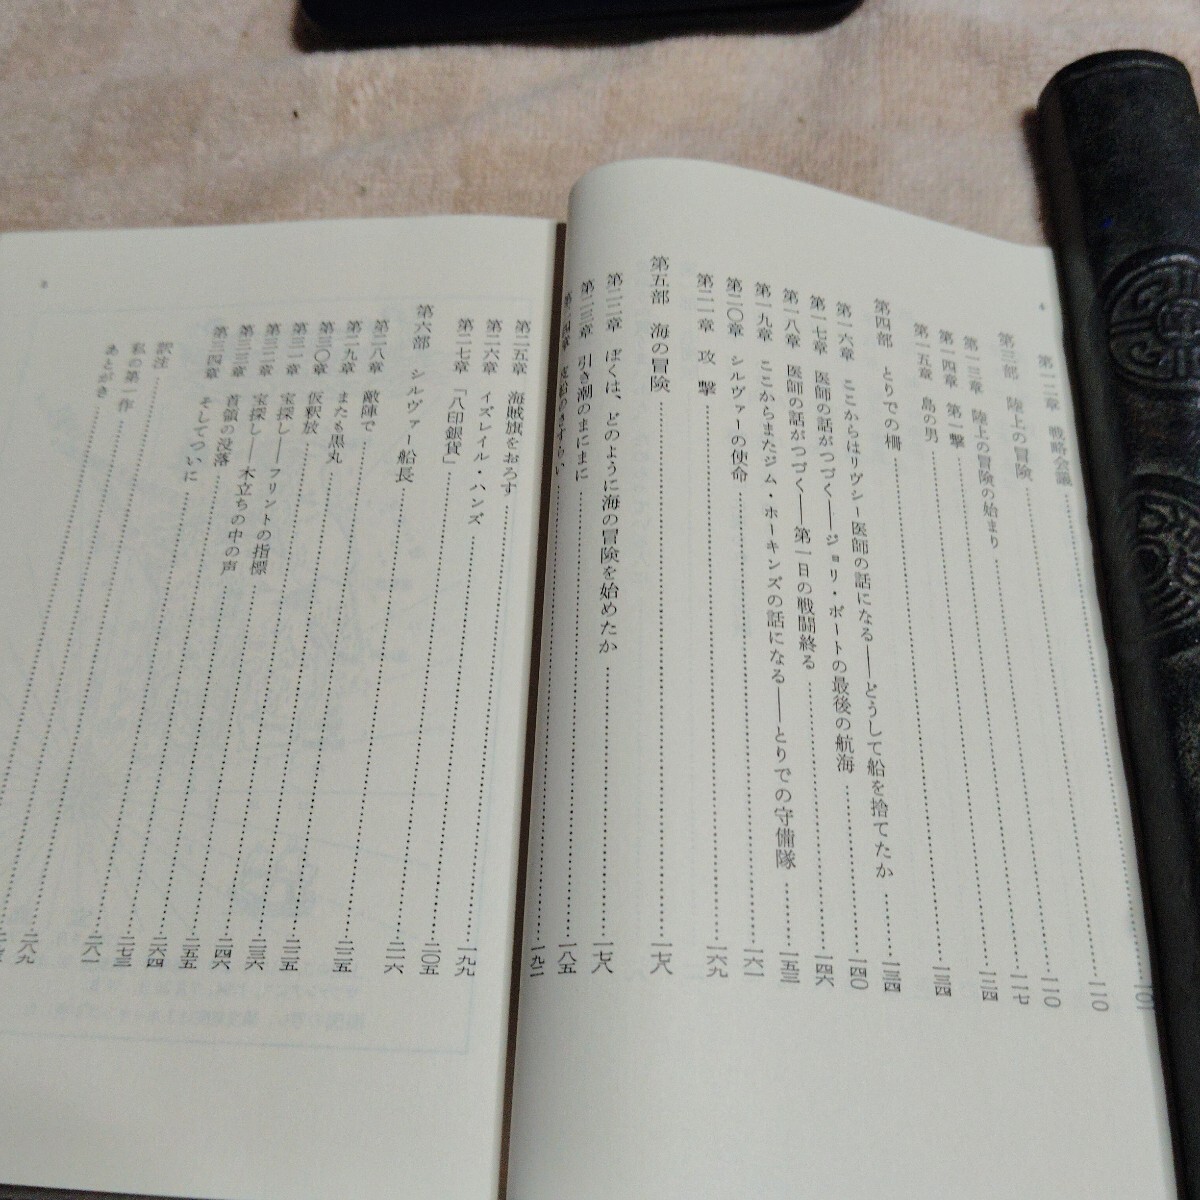 4
第一二章 戦略会議……一〇一
第三部 陸上の冒険……一一〇
第一三章 陸上の冒険の始まり……一一〇
第一四章 第一撃……一一七
第一五章 島の男……一二四
第四部 とりでの柵……一三四
第一六章 ここからはリヴシー医師の話になる――どうして船を捨てたか……一三四
第一七章 医師の話がつづく――ジョリ・ボートの最後の航海……一四〇
第一八章 医師の話がつづく――第一日の戦闘終る……一四六
第一九章 ここからまたジム・ホーキンズの話になる――とりでの守備隊……一五三
第二〇章 シルヴァーの使命……一六一
第二一章 攻撃……一六九
第五部 海の冒険……一七八
第二二章 ぼくは、どのように海の冒険を始めたか……一七八
第二三章 引き潮のまにまに……一八五
皮船のさすらい……一九二
第二五章 海賊旗をおろす……一九九
第二六章 イズレイル・ハンズ……二〇五
第二七章 「八印銀貨」……二一六
第六部 シルヴァー船長……二二五
第二八章 敵陣で……二二五
第二九章 またも黒丸……二三六
第三〇章 仮釈放……二四六
第三一章 宝探し――フリントの指標……二五五
第三二章 宝探し――木立ちの中の声……二六四
第三三章 首領の没落……二七三
第三四章 そしてついに……二八一
訳注……二八九
私の第一作
あとがき